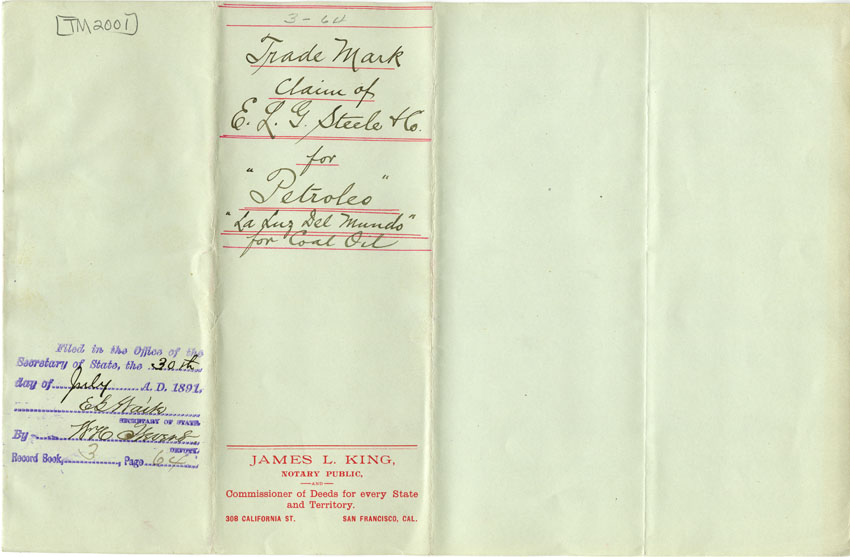 [TM2001]
3-64
Trade Mark
Claim of
E. L. G. Steele & Co.
for
"Petroleo"
"La Luz Del Mundo"
for Coal Oil
Filed in the Office of the
Secretary of State, the 30th
day of July A. D. 1891.
E G Waite
SECRETARY OF STATE.
By
DEPUTY.
Record Book, 3, Page 64
JAMES L. KING,
NOTARY PUBLIC,
—AND—
Commissioner of Deeds for every State
and Territory.
308 CALIFORNIA ST. SAN FRANCISCO, CAL.